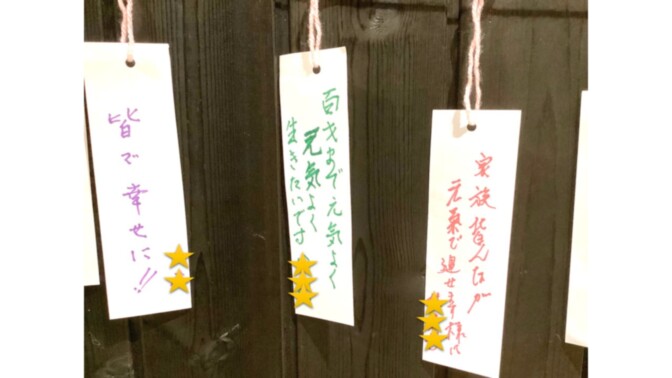 皆で幸せに!!
百才まで元気よく
元気よく
生きたいです
家族皆んなが
元気で過せます様に